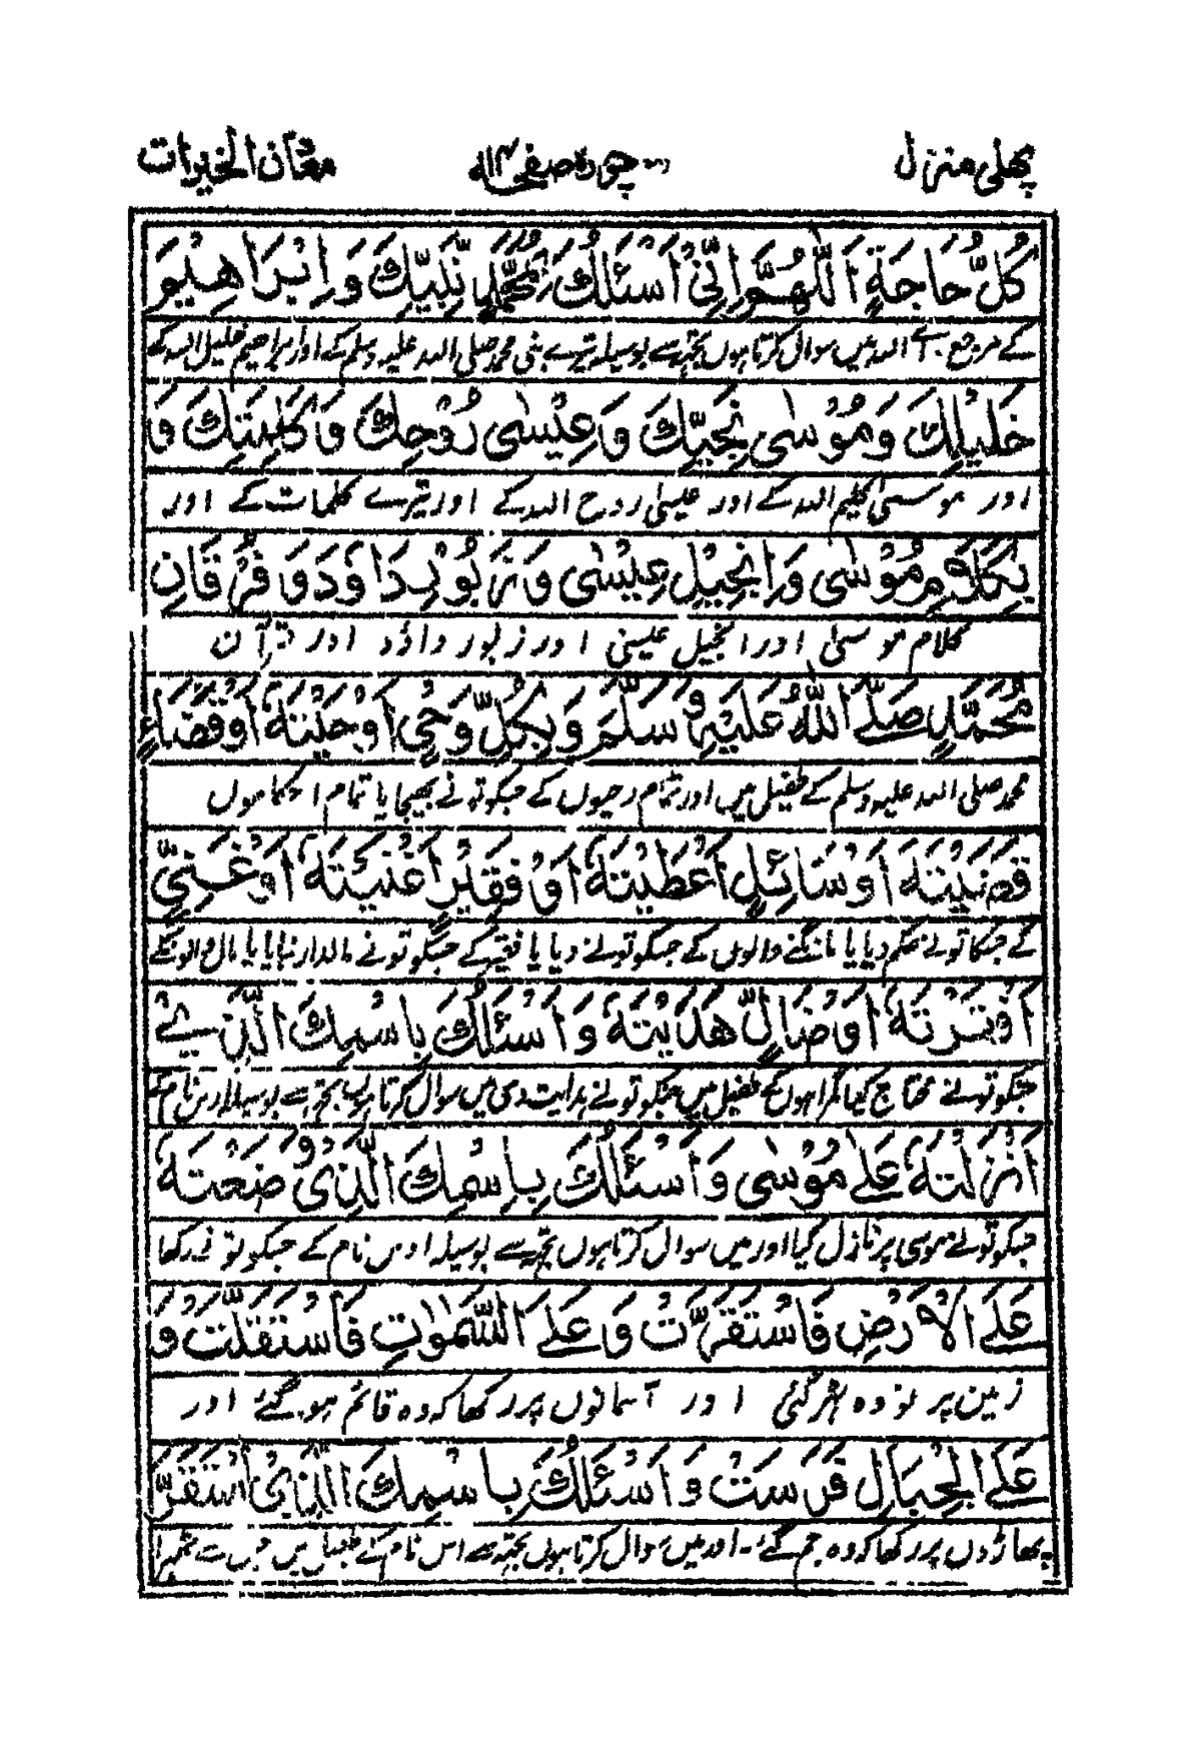 پهلی منزل چودہ صفحہ ۱۴ معان الخیرات
كُلُّ حَاجَةٍ اَللّٰهُمَّ اِنِّيْ اَسْئَلُكَ بِمُحَمَّدٍ نَّبِيِّكَ وَاِبْرَاهِيْمَ
کے مرجع ہے اللہ میں سوال کرتا ہوں تجھ سے بوسیلہ تیرے نبی محمد صلی اللہ علیہ وسلم کے اور ابراھیم خلیل اللہ کے
خَلِيْلِكَ وَمُوْسٰى نَجِيِّكَ وَعِيْسٰى رُوْحِكَ وَكَلِمَتِكَ وَ
اور موسیٰ کلیم اللہ کے اور عیسیٰ روح اللہ کے اور تیرے کلمات کے اور
بِكَلَامِ مُوْسٰى وَاِنْجِيْلِ عِيْسٰى وَزَبُوْرِ دَاوٗدَ وَفُرْقَانِ
کلام موسیٰ اور انجیل عیسیٰ اور زبور داؤد اور قرآن
مُحَمَّدٍ صَلَّى اللّٰهُ عَلَيْهِ وَسَلَّمَ وَبِكُلِّ وَحْيٍ اَوْحَيْتَهٗ اَوْ قَضَاءٍ
محمد صلی اللہ علیہ وسلم کے طفیل میں اور تمام وحیوں کے جسکو تو نے بھیجا یا تمام احکاموں
قَضَيْتَهٗ اَوْ سَائِلٍ اَعْطَيْتَهٗ اَوْ فَقِيْرٍ اَغْنَيْتَهٗ اَوْ غَنِيٍّ
کے جسکا تو نے حکم دیا یا مانگنے والوں کے جسکو تو نے دیا یا فقیر کے جسکو تو نے مالدار بنایا یا مال
اَفْقَرْتَهٗ اَوْ ضَالٍّ هَدَيْتَهٗ وَاَسْئَلُكَ بِاسْمِكَ الَّذِيْ
جسکو تو نے محتاج کیا گمراہوں کے طفیل میں جسکو تو نے ہدایت دی میں سوال کرتا ہوں تجھ سے بوسیلہ اوس نام کے
اَنْزَلْتَهٗ عَلٰى مُوْسٰى وَاَسْئَلُكَ بِاسْمِكَ الَّذِيْ وَضَعْتَهٗ
جسکو تو نے موسی پر نازل کیا اور میں سوال کرتا ہوں تجھ سے بوسیلہ اوس نام کے جسکو تو نے رکھا
عَلَى الْاَرْضِ فَاسْتَقَرَّتْ وَعَلَى السَّمٰوٰتِ فَاسْتَقَلَّتْ وَ
زمین پر تو وہ ٹھر گئی اور آسمانوں پر رکھا کہ وہ قائم ہو گئے اور
عَلَى الْجِبَالِ فَرَسَتْ وَاَسْئَلُكَ بِاسْمِكَ الَّذِيْ اسْتَقَرَّ
پھاڑوں پر رکھا کہ وہ جم گئے۔ اور میں سوال کرتا ہوں تجھ سے اس نام کے طفیل میں جس سے ٹھہرا